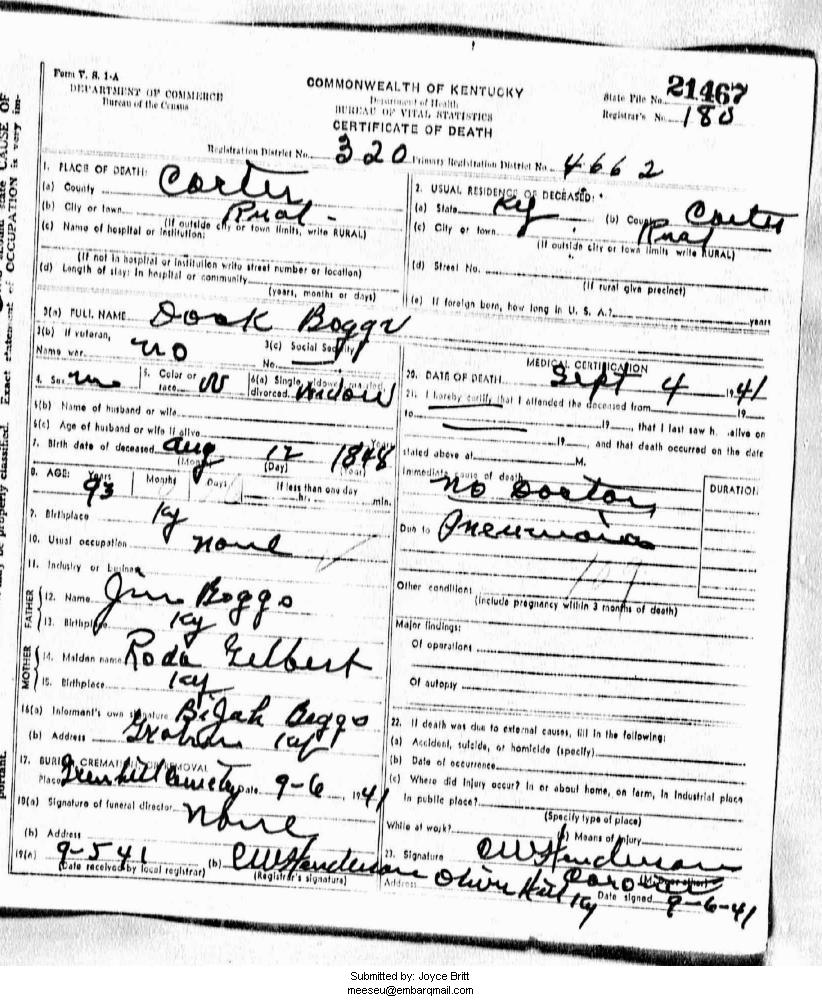 Form V. S. 1-A
DEPARTMENT OF COMMERCE
Bureau of the Census
COMMONWEALTH OF KENTUCKY
Department of Health
BUREAU OF VITAL STATISTICS
CERTIFICATE OF DEATH
State File No. 21467
Registrar's No. 180
Registration District No. 320 Primary Registration District No. 4662
1. PLACE OF DEATH:
(a) County Carter
(b) City or town Rural -
(If outside city or town limits, write RURAL)
(c) Name of hospital or institution:
(If not in hospital or institution write street number or location)
(d) Length of stay: In hospital or community
(years, months or days)
2. USUAL RESIDENCE OF DECEASED:
(a) State Ky (b) County Carter
(c) City or town Rural
(If outside city or town limits write RURAL)
(d) Street No.
(If rural give precinct)
(e) If foreign born, how long in U. S. A.? years
3(a) FULL NAME Dock Boggs
3(b) If veteran,
Name war no
3(c) Social Security
No.
4. Sex m 5. Color or race W 6(a) Single, widowed, married, divorced Widow
6(b) Name of husband or wife
6(c) Age of husband or wife if alive Years
7. Birth date of deceased Aug 12 1848
(Month) (Day) (Year)
8. AGE: Years Months Days If less than one day
93 hr. min.
9. Birthplace Ky
10. Usual occupation none
11. Industry or business
FATHER
12. Name Jim Boggs
13. Birthplace Ky
MOTHER
14. Maiden name Roda Gelbert
15. Birthplace Ky
16(a) Informant's own signature Bijah Boggs
(b) Address Grahn Ky
17. BURIAL CREMATION OR REMOVAL
Place Cemetery Date 9-6, 1941
18(a) Signature of funeral director None
(b) Address
19(a) 9-5 41 (b) CW Henderson
(Date received by local registrar) (Registrar's signature)
MEDICAL CERTIFICATION
20. DATE OF DEATH Sept 4 1941
21. I hereby certify that I attended the deceased from 19
to 19, that I last saw h. alive on
19, and that death occurred on the date
stated above at M.
Immediate cause of death
no Doctor
DURATION
Due to Pneumonia
107
Other conditions
(Include pregnancy within 3 months of death)
Major findings:
Of operations
Of autopsy
22. If death was due to external causes, fill in the following:
(a) Accident, suicide, or homicide (specify)
(b) Date of occurrence
(c) Where did injury occur? In or about home, on farm, in industrial place
in public place?
(Specify type of place)
While at work? (e) Means of injury
23. Signature CW Henderson
Coroner
Address Olive Hill Ky Date signed 9-6-41
Submitted by: Joyce Britt
meeseu@embarqmail.com